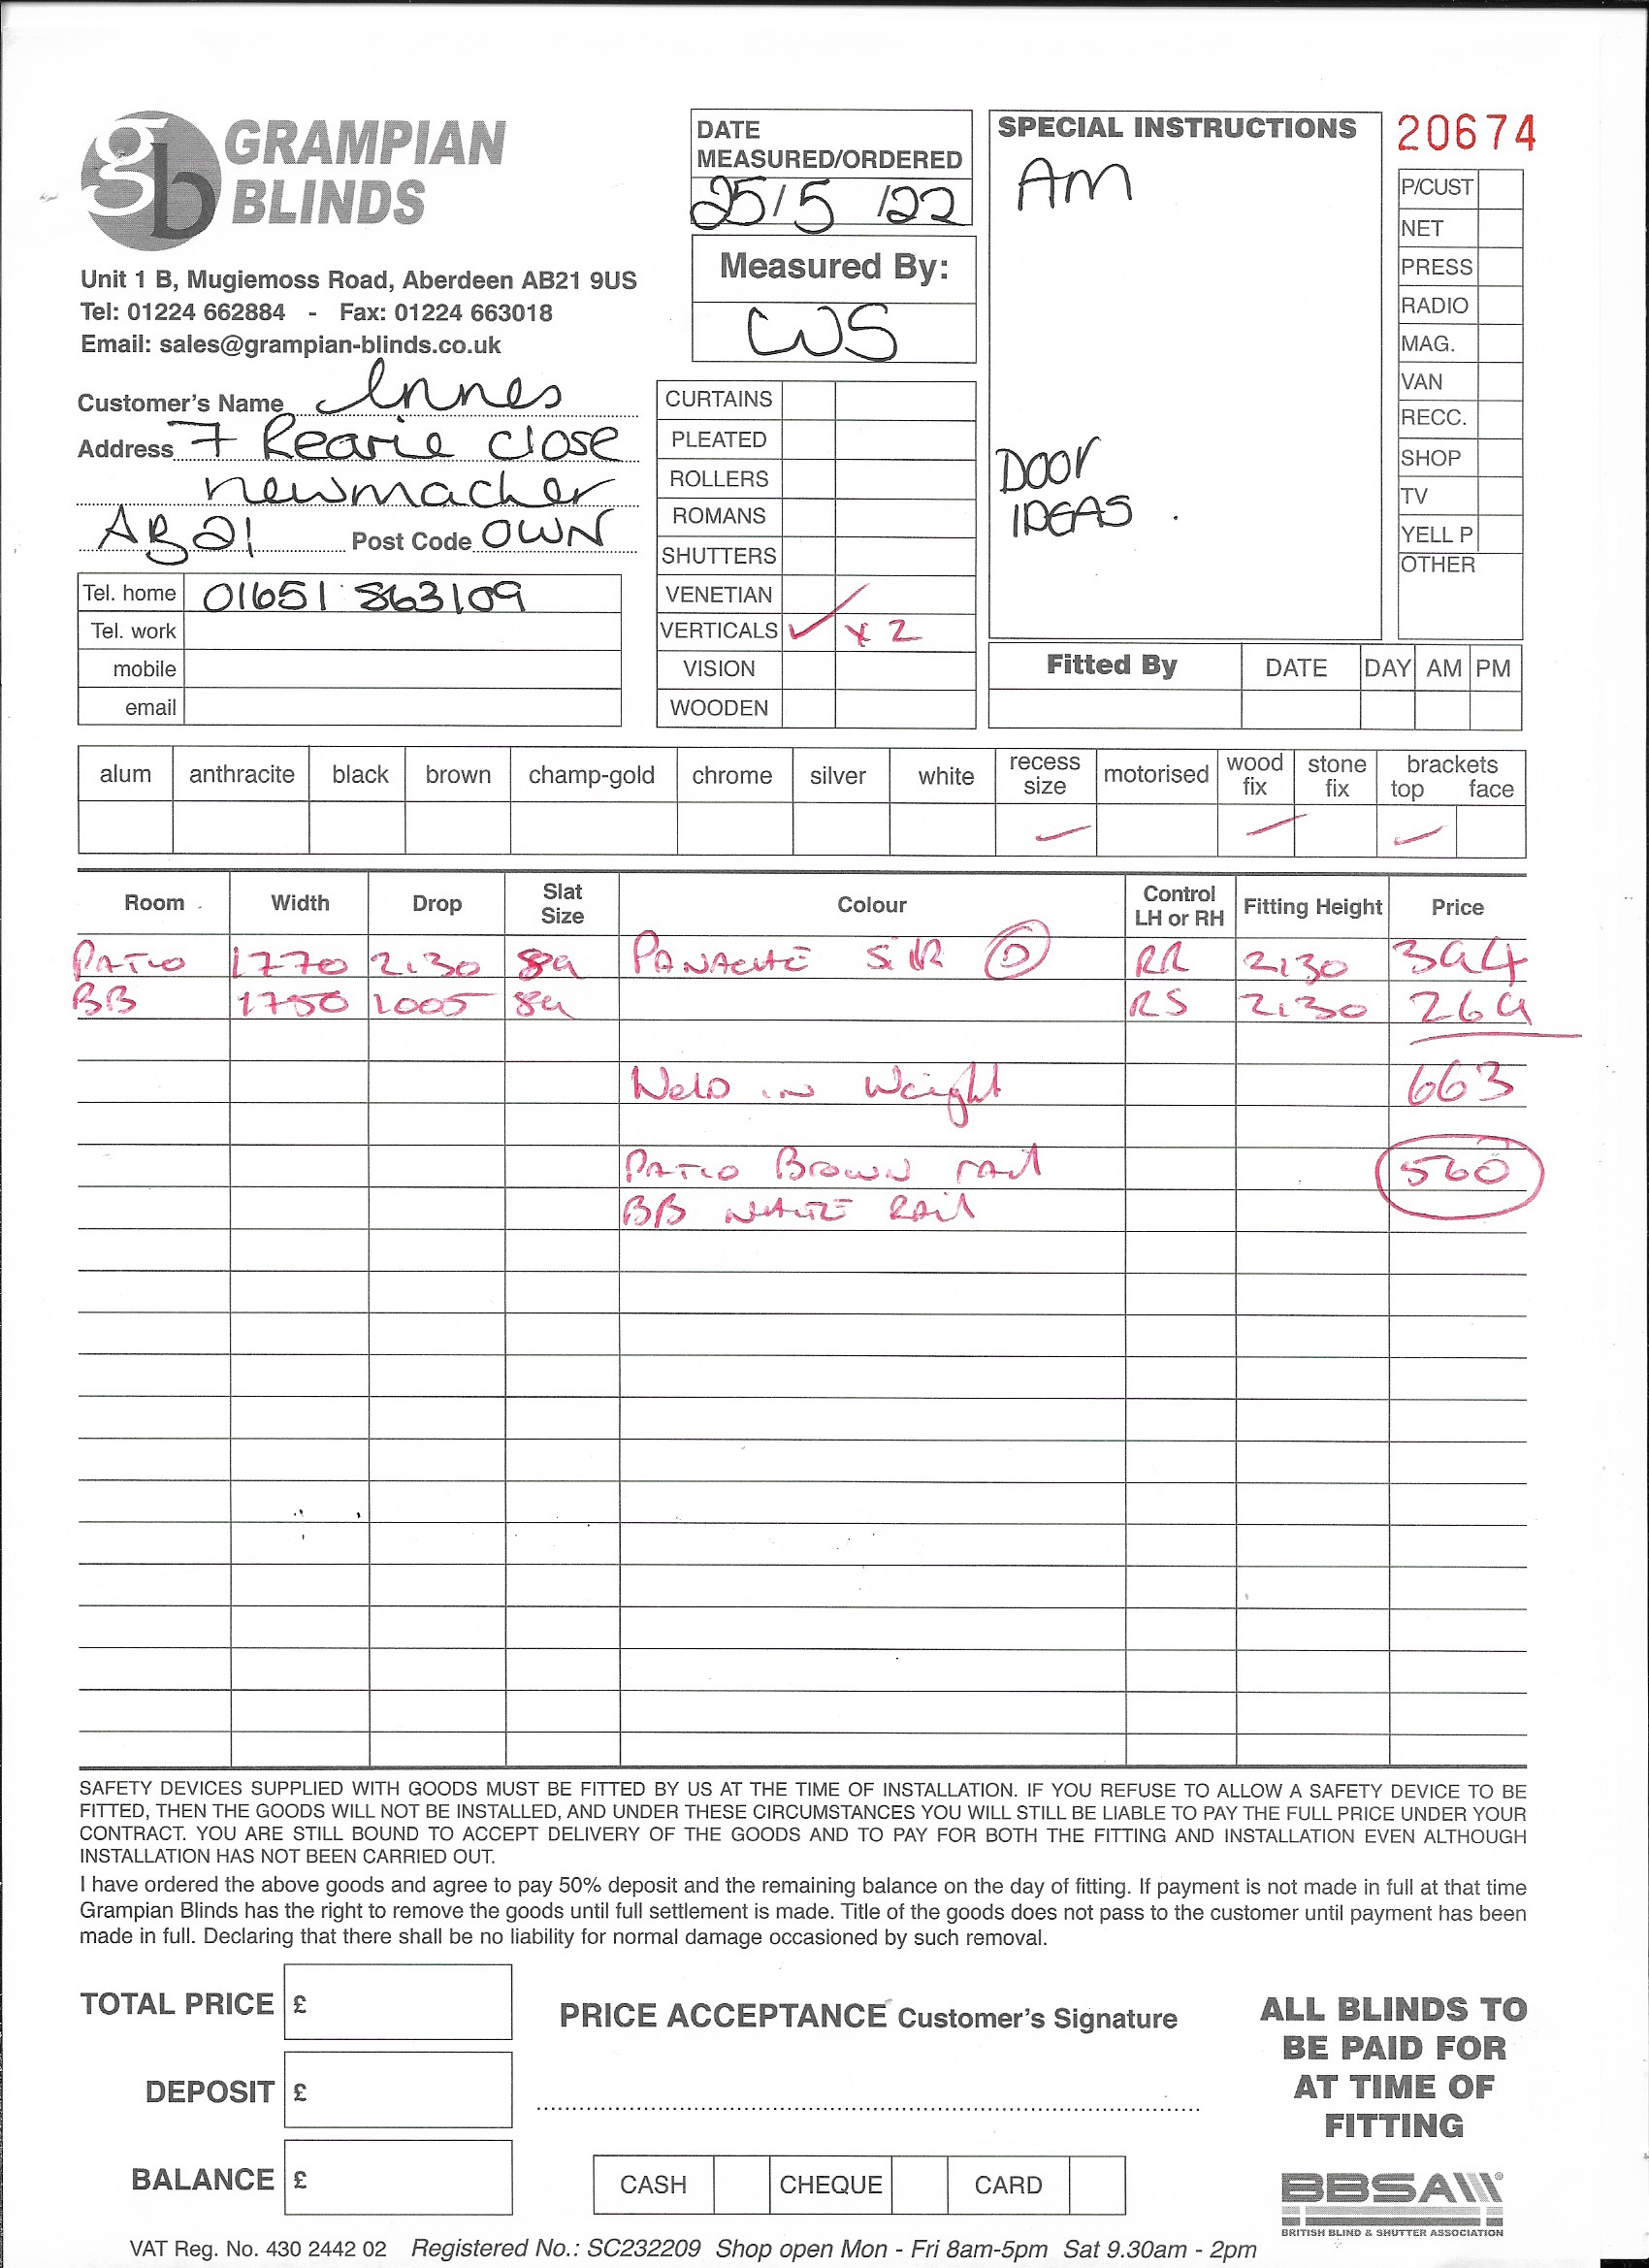 GRAMPIAN
BLINDS
Unit 1 B, Mugiemoss Road, Aberdeen AB21 9US
Tel: 01224 662884 - Fax: 01224 663018
Email: sales@grampian-blinds.co.uk
Customer's Name Innes
Address 7 Rearie Close
Newmacher
AB21 Post Code OWN
Tel. home 01651 863109
Tel. work
mobile
email
DATE
MEASURED/ORDERED
25/5/22
Measured By:
CWS
CURTAINS
PLEATED
ROLLERS
ROMANS
SHUTTERS
VENETIAN
VERTICALS ✓ x 2
VISION
WOODEN
SPECIAL INSTRUCTIONS
AM
DOOR
IDEAS.
20674
P/CUST
NET
PRESS
RADIO
MAG.
VAN
RECC.
SHOP
TV
YELL P
OTHER
Fitted By DATE DAY AM PM
alum anthracite black brown champ-gold chrome silver white recess size motorised wood fix stone fix brackets top face
Room Width Drop Slat Size Colour Control LH or RH Fitting Height Price
PATIO 1770 2130 89 PANACHE D RR 2130 394
BB 1750 1005 89 RS 2130 269
663
Weld in Weight
PATIO Brown rail 560
BB WHITE Rail
SAFETY DEVICES SUPPLIED WITH GOODS MUST BE FITTED BY US AT THE TIME OF INSTALLATION. IF YOU REFUSE TO ALLOW A SAFETY DEVICE TO BE
FITTED, THEN THE GOODS WILL NOT BE INSTALLED, AND UNDER THESE CIRCUMSTANCES YOU WILL STILL BE LIABLE TO PAY THE FULL PRICE UNDER YOUR
CONTRACT. YOU ARE STILL BOUND TO ACCEPT DELIVERY OF THE GOODS AND TO PAY FOR BOTH THE FITTING AND INSTALLATION EVEN ALTHOUGH
INSTALLATION HAS NOT BEEN CARRIED OUT.
I have ordered the above goods and agree to pay 50% deposit and the remaining balance on the day of fitting. If payment is not made in full at that time
Grampian Blinds has the right to remove the goods until full settlement is made. Title of the goods does not pass to the customer until payment has been
made in full. Declaring that there shall be no liability for normal damage occasioned by such removal.
TOTAL PRICE £
DEPOSIT £
BALANCE £
PRICE ACCEPTANCE Customer's Signature
CASH CHEQUE CARD
ALL BLINDS TO
BE PAID FOR
AT TIME OF
FITTING
BBSA
BRITISH BLIND & SHUTTER ASSOCIATION
VAT Reg. No. 430 2442 02 Registered No.: SC232209 Shop open Mon - Fri 8am-5pm Sat 9.30am - 2pm